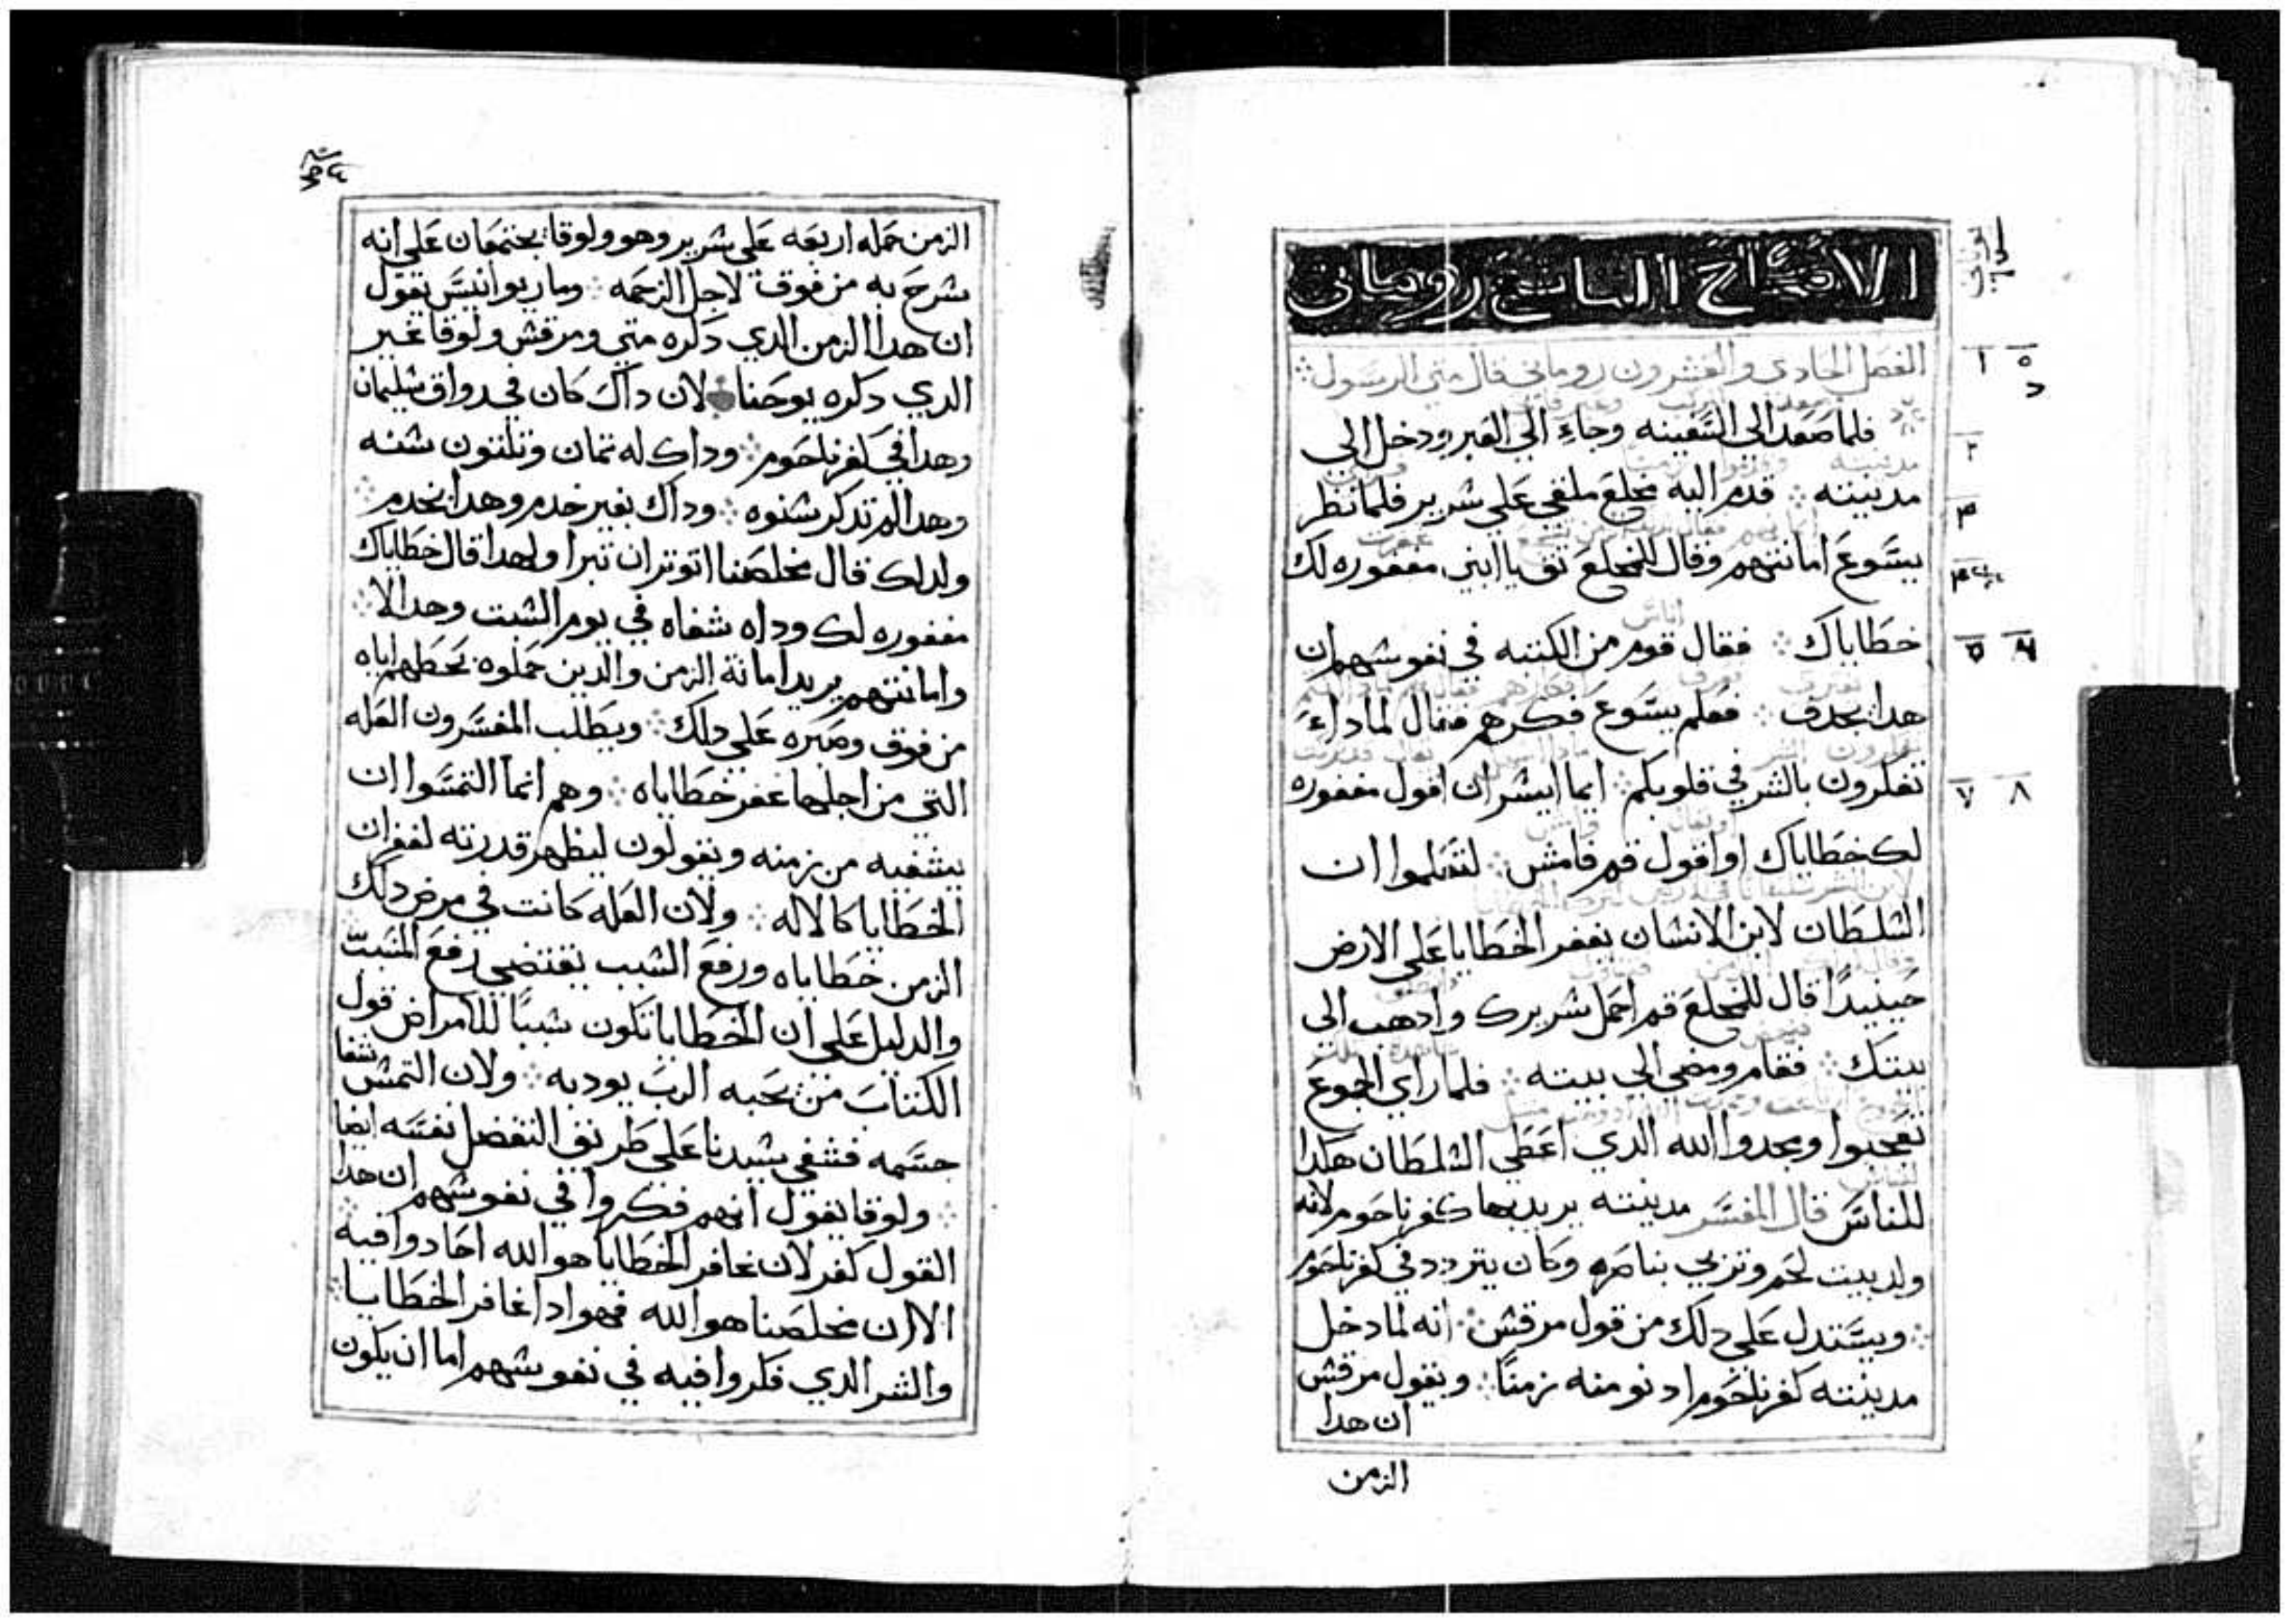 الاصحاح التاسع روماني
الفصل الحادي والعشرون روماني قال متي الرسول
فلما صعد الي السفينه وجاء الي العبر ودخل الي
مدينته ܀ قدم اليه مخلع ملقي علي شرير فلما نظر
يسوع امانتهم وقال للمخلع ثق يا ابني مغفوره لك
خطاياك ܀ فقال قوم من الكتبه في نفوشهم ان
هدا يجدف ܀ فعلم يسوع فكرهم فقال لماداء
تفكرون بالشر في قلوبكم ܀ ايما ايشر ان اقول مغفوره
لك خطاياك او اقول قم فامش ܀ لتعلموا ان
الشلطان لابن الانشان يغفر الخطايا علي الارض
حينيدًا قال للمخلع قم احمل شريرك وادهب الي
بيتك ܀ فقام ومضي الي بيته ܀ فلما راي الجوع
تعجبوا ومجدوا الله الدي اعطي الشلطان هكدا
للناس قال المفسر مدينته يريد بها كفرناحوم لانه
ولد ببيت لحم وتربي بناصره وكان يتردد في كفرناحوم
܀ ويستدل علي دلك من قول مرقش ܀ انه لما دخل
مدينته كفرناحوم ادنو منه زمنًا ܀ ويقول مرقش
ان هدا
الزمن
الزمن حمله اربعه علي شرير وهو ولوقا يجتمعان علي انه
شرح به من فوق لاجل الزحمه ܀ وماريوانيس يقول
ان هدا الزمن الدي دكره متي ومرقش ولوقا غير
الدي دكره يوحنا لان داك كان في رواق شليمان
وهدا في كفرناحوم ܀ وداك له تمان وتلتون شنه
وهدا لم تدكر شنوه ܀ وداك بغير خدم وهدا بخدم ܀
ولدلك قال مخلصنا اتوتر ان تبرا ولهدا قال خطاياك
مغفوره لك وداه شفاه في يوم الشبت وهدا لا ܀
وامانتهم يريد امانة الزمن والدين حملوه بحطهم اياه
من فوق وصبره علي دلك ܀ ويطلب المفسرون العله
التي من اجلها غفر خطاياه ܀ وهم انما التمسوا ان
يشفيه من زمنه ويقولون ليظهر قدرته لغفران
الخطايا كالاله ܀ ولان العله كانت في مرض دلك
الزمن خطاياه ورفع الشبب يقتضي رفع المسبب
والدليل علي ان الخطايا تكون شببًا للامراض قول
الكتاب من يحبه الرب يودبه ܀ ولان التمش شفا
جسمه فشفي شيدنا علي طريق التفضل نفسه ايضا
܀ ولوقا يقول انهم فكروا في نفوشهم ان هدا
القول كفر لان غافر الخطايا هو الله اجادوا فيه
الا ان مخلصنا هو الله فهو ادا غافر الخطايا ܀
والشر الدي فكروا فيه في نفوشهم اما ان يكون